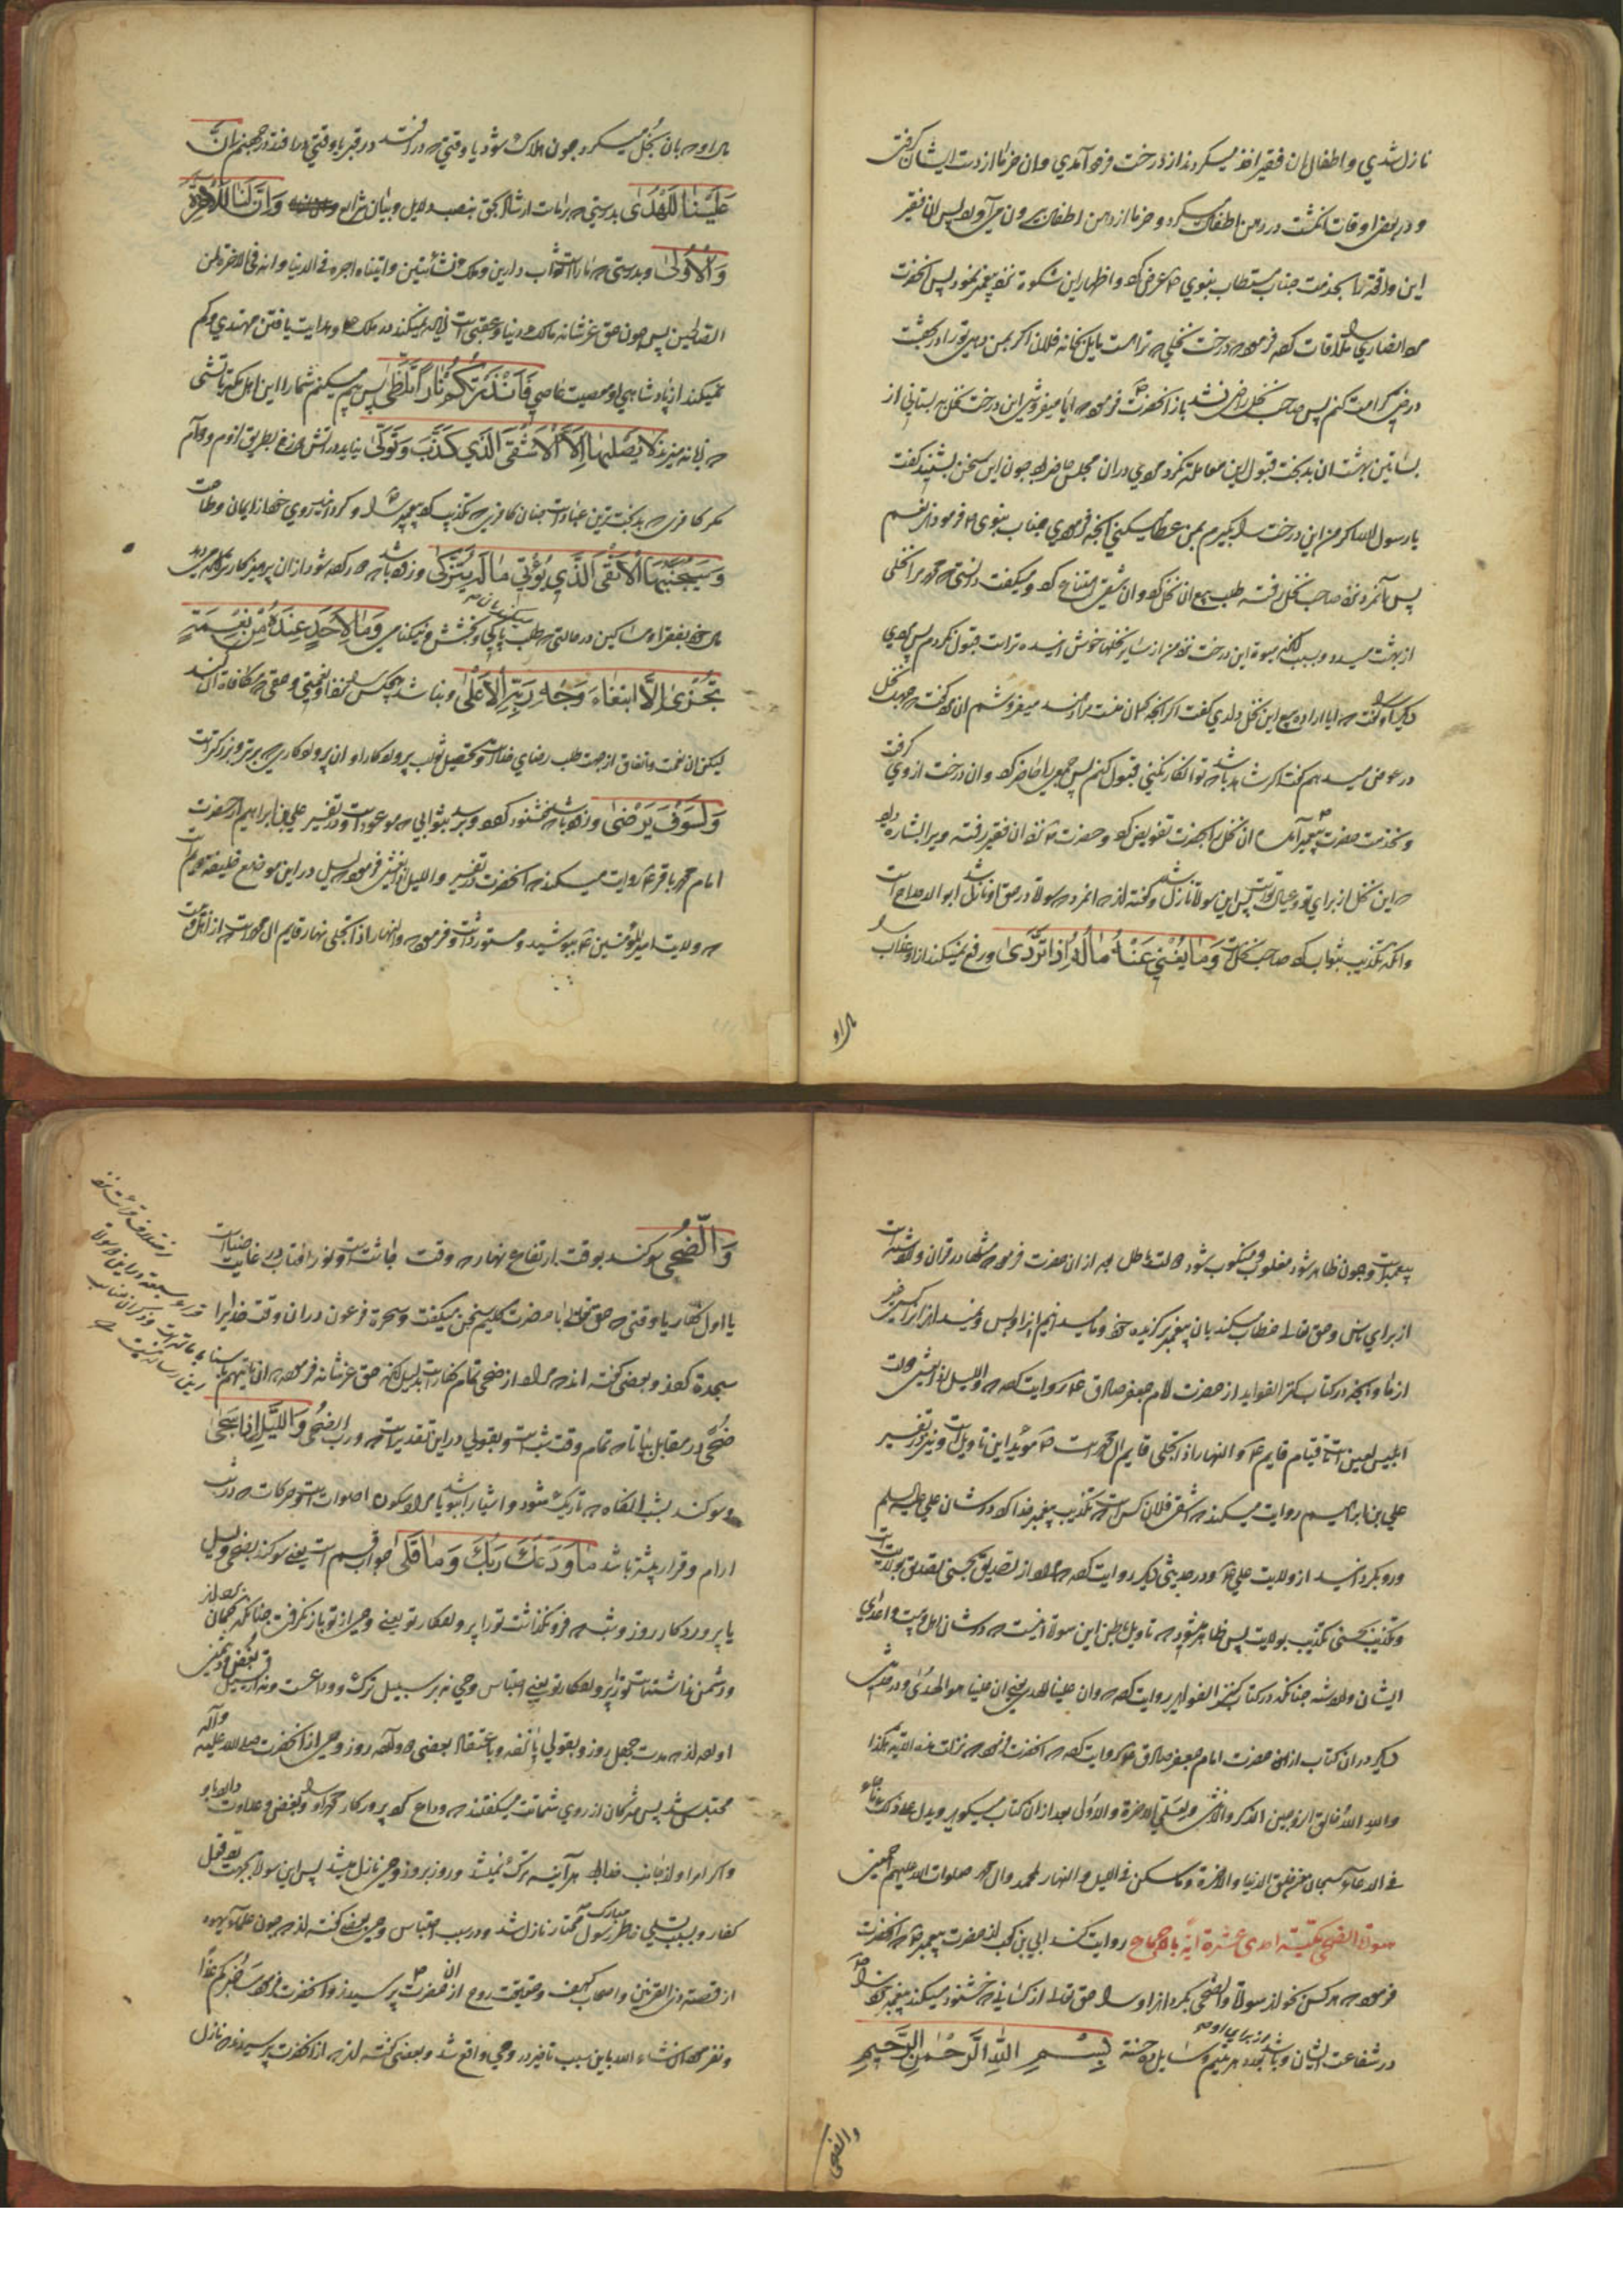 نازل شدی و اطفال ان فقیر اخذ میکردند از درخت فرو آمدی و ان خرما از دست ایشان گرفتی
و در بعض اوقات انگشت در دهن اطفال میکرد و خرما از دهن اطفال بیرون می آورد پس ان فقیر
این واقعه را بخدمت جناب مستطاب نبوی عرض کرد و اظهار این شکوه نزد پیغمبر نمود پس انحضرت
انصاری را ملاقات کرد فرمود درخت نخلی که تراست مایل بخانه فلان اگر بمن دهی ترا در بهشت
درختی کرامت کنم پس صاحب نخل راضی نشد باز انحضرت فرمود ایا میفروشی این درخت نخل به بستانی از
بساتین بهشت ان بدبخت قبول این معامله نکرد مردی در ان مجلس حاضر بود چون این سخن بشنید گفت
یا رسول الله اگر من این درخت را بگیرم بمن عطا میکنی انچه فرمودی جناب نبوی فرمود اری نعم
پس آنمرد نزد صاحب نخل رفته طلب بیع ان نخل کرد و ان شقی امتناع کرد و میگفت دانستی که محمد مرا نخلی
از بهشت میداد و بسبب انکه میوه این درخت نزد من از سایر نخلها خوش آینده تر است قبول نکردم پس مردی
دیگر او را گفت ایا اراده بیع این نخل داری گفت اگر انچه گمان نیست مرا دهند میفروشم ان مرد گفت چهل نخل
در عوض میدهم گفت اگر شاهد باشد تو انکار نکنی قبول کنم پس جمعی را حاضر کرد و ان درخت از وی گرفت
و بخدمت حضرت پیغمبر آمد ان نخل را بحضرت تفویض کرد و حضرت نزد ان فقیر رفته ویرا بشارت داد
که این نخل از برای تو و عیال تست پس این سوره نازل شد و گفته اند انمرد که سوره در حق او نازل شد ابو الدحداح است
وانکه تکذیب بثواب کرد صاحب نخل است وَمَا يُغْنِي عَنْهُ مَالُهُ إِذَا تَرَدَّىٰ و رفع نمیکند از او عذاب را
مال او
مال او که بان بخل میکرد چون هلاک شود یا وقتی که در افتد در قبر یا وقتی که در افتد در جهنم إِنَّ
عَلَيْنَا لَلْهُدَىٰ بدرستی که بر ماست ارشاد بحق بنصب دلایل و بیان شرایع وَإِنَّ لَنَا لَلْآخِرَةَ
وَالْأُولَىٰ و بدرستی که ما راست ثواب دارین و ملک نشأتین و اتیناه اجره فی الدنیا و انه فی الاخرة لمن
الصالحین پس چون حق عز شانه مالک دنیا و عقبی است زیاده نمیکند در ملک او هدایت یافتن مهتدی و کم
نمیکند از پادشاهی او معصیت عاصی فَأَنْذَرْتُكُمْ نَارًا تَلَظَّىٰ پس بیم میکنم شما را این اهل مکه باتشی
که زبانه میزند لَا يَصْلَاهَا إِلَّا الْأَشْقَى الَّذِي كَذَّبَ وَتَوَلَّىٰ نیاید در اتش دوزخ بطریق لزوم و دوام
مگر کافری که بدبخت ترین عباد است چنان کافری که تکذیب کرد پیغمبر را و گردانید روی خود از ایمان و طاعت
وَسَيُجَنَّبُهَا الْأَتْقَى الَّذِي يُؤْتِي مَالَهُ يَتَزَكَّىٰ و زود باشد که دور کرده شود از ان پرهیزکار ترین که میدهد
مال خود بفقرا و مساکین در حالتی که طلب پاکی و بخشش و نیکنامی وَمَا لِأَحَدٍ عِنْدَهُ مِنْ نِعْمَةٍ
تُجْزَىٰ إِلَّا ابْتِغَاءَ وَجْهِ رَبِّهِ الْأَعْلَىٰ و نباشد هیچکس را نزد او نعمتی و حقی که مکافات ان کند
لیکن ان نعمت و انفاق از جهت طلب رضای خداست و تحصیل ثواب پروردگار او ان پروردگاری که برتر و بزرگتر است
وَلَسَوْفَ يَرْضَىٰ و زود باشد خشنود گردد و برسد بثوابی که موعود است و در تفسیر علی بن ابراهیم از حضرت
امام محمد باقر روایت میکند که انحضرت در تفسیر واللیل اذا یغشی فرمود لیل در این موضع خلیفه دوم است
که ولایت امیر المؤمنین بپوشید و مستور داشت و فرمود والنهار اذا تجلی نهار قایم ال محمد است
پیغمبر است و چون ظاهر شود مغلوب و منکوب شود دولت باطل بعد از ان حضرت فرمود مثلها در قران زده شده است
از برای ناس و حق تعالی خطاب میکند بان پیغمبر برگزیده خود و ما میدانیم انرا و بس و نمیداند انرا کسی غیر
از ما و انچه در کتاب کنز الفواید از حضرت امام جعفر صادق روایت کرده که واللیل اذا یغشی دولت
ابلیس لعین است تا قیام قایم والنهار اذا تجلی قایم ال محمد است مؤید این تاویل است و نیز در تفسیر
علی بن ابراهیم روایت میکند که اشقی فلان کس است که تکذیب پیغمبر خدا کرد در شان علی علیه السلم
و رو بگردانید از ولایت علی و در حدیثی دیگر روایت کرده که مراد از تصدیق بحسنی تصدیق بولایت است
و تکذیب بحسنی تکذیب بولایت پس ظاهر میشود که تاویل باطن این سوره اینست که در شان اهل بیت و اعدای
ایشان وارد شده چنانکه در کتاب کنز الفواید روایت کرده که وان علینا للهدی یعنی ان علیا هو الهدی و در حدیث
دیگر در ان کتاب از ان حضرت امام جعفر صادق روایت کرده که انحضرت فرمود که نزلت هذه الایه هکذا
والله الله خالق الزوجین الذکر والانثی ولعلی الاخرة والاولی بعد از ان کتاب میگوید ویدل علی ذلک ما جاء
فی الدعاء سبحان من خلق الدنیا والاخرة وما سکن فی اللیل والنهار لمحمد وال محمد صلوات الله علیهم اجمعین
سورة الضحی مکیة احدی عشرة ایة بالاجماع روایت کند ابی بن کعب از حضرت پیغمبر که انحضرت
فرمود هر کس بخواند سوره والضحی بگرداند او را حق تعالی از کسانی که خشنود میکند پیغمبر خود را
در شفاعت ایشان و باشد از برای او بعدد هر یتیم و سایل ده حسنه بِسْمِ اللَّهِ الرَّحْمَٰنِ الرَّحِيمِ
والضحی
وَالضُّحَىٰ سوگند بوقت ارتفاع نهار که وقت چاشت است و نور افتاب در غایت ضیاست
یا اول نهار یا وقتی که حق تعالی با حضرت کلیم سخن میگفت و سحره فرعون در ان وقت خدا را
سجده کردند و بعضی گفته اند مراد از ضحی تمام نهار است بدلیل انکه حق عز شانه فرموده ان یأتیهم بأسنا
ضحی در مقابل بیاتا که تمام وقت شب است و بقولی در این تقدیر است که ورب الضحی وَاللَّيْلِ إِذَا سَجَىٰ
و سوگند بشب انگاه که تاریک شود و اشیا را بپوشد یا مراد سکون اصوات است و حرکات که در شب
ارام و قرار بیشتر باشد مَا وَدَّعَكَ رَبُّكَ وَمَا قَلَىٰ جواب قسم است یعنی سوگند بضحی و لیل
یا پروردگار روز و شب که فرو نگذاشت ترا پروردگار تو یعنی وحی از تو باز نگرفت چنانکه گمان کرده اند
و دشمن نداشته است ترا پروردگار تو یعنی احتباس وحی نه بر سبیل ترک و وداعست و نه از سبیل بغض و دشمنی
اورده اند مدت چهل روز و بقولی پانزده و باعتقاد بعضی دوازده روز وحی از انحضرت صلی الله علیه و آله
محتبس شد پس مشرکان از روی شماتت میگفتند که وداع کرد پروردگار محمد او را و بغض و عداوت دارد با او
و اگر امر او از جانب خدا بود هر آینه ترک نمیشد و روز بروز وحی نازل میشد پس این سوره بجهت رد قول
کفار و بسبب تسلی خاطر مبارک رسول مختار نازل شد و در سبب احتباس وحی بعضی گفته اند چون علماء یهود
از قصه ذی القرنین و اصحاب کهف و حقیقت روح از ان حضرت پرسیدند و انحضرت فرمود ساخبرکم غدا
و نفرمود ان شاء الله باین سبب تاخیر در وحی واقع شد و بعضی گفته اند از انحضرت پرسیدند که نازل